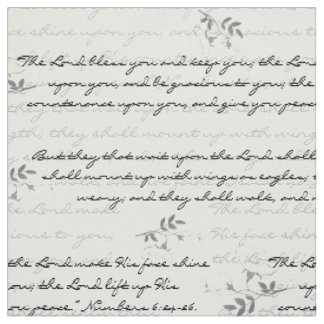 shine upon you, and gracious to
"The Lord bless you and keep you; the Lord
upon you, and be gracious to you; the
countenance upon you, and give you peace
ngth; they shall mount up with wings
But they that wait upon the Lord shall
shall mount up with wings as eagles; t
weary; and they shall walk, and n
the Lord make The Lord
ious to you; His face shine
the Lord make His face shine "The Lo
ou; the Lord lift up His upon
ou peace." Numbers 6:24-26. counten